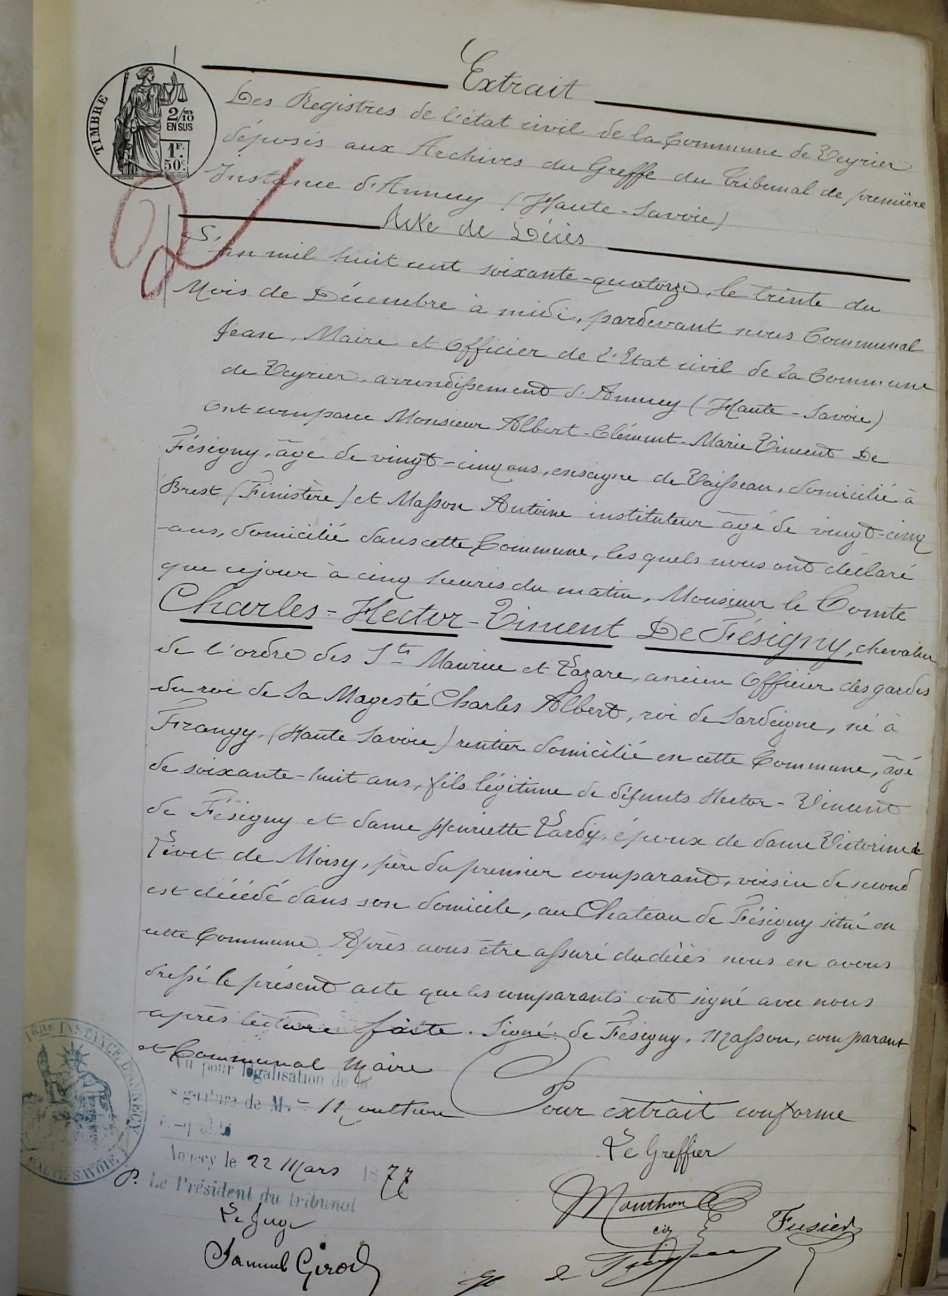 TIMBRE
2/10
EN SUS
1F.
50c.
Extrait
Des Registres de l'état civil de la Commune de Veyrier
déposés aux Archives du Greffe du Tribunal de première
Instance d'Annecy (Haute-Savoie)
Acte de Décès
L'an mil huit cent soixante-quatorze, le trente du
Mois de Décembre à midi, pardevant nous Communal
Jean, Maire et Officier de l'Etat civil de la Commune
de Veyrier, arrondissement d'Annecy (Haute-Savoie)
ont comparu Monsieur Albert-Clément-Marie Vincent De
Fésigny, âgé de vingt-cinq ans, enseigne de Vaisseau, domicilié à
Brest (Finistère) et Masson Antoine instituteur âgé de vingt-cinq
ans, domicilié dans cette Commune, lesquels nous ont déclaré
que ce jour à cinq heures du matin, Monsieur le Comte
Charles-Hector-Vincent De Fésigny, chevalier
de l'ordre des Sts Maurice et Lazare, ancien Officier des gardes
du roi de Sa Magesté Charles Albert, roi de Sardeigne, né à
Frangy, (Haute Savoie) rentier domicilié en cette Commune, âgé
de soixante-huit ans, fils légitime de défunts Hector-Vincent
de Fésigny et dame Henriette Lardy, époux de dame Victorine de
Livet de Moisy, père du premier comparant, voisin de second
est décédé dans son domicile, au Chateau de Fésigny situé en
cette Commune. Après nous être assuré du décès nous en avons
dressé le présent acte que les comparants ont signé avec nous
après lecture faite. Signé: de Fésigny, Masson, comparant
et Communal Maire
Vu pour légalisation de la
signature de M. Mouthon
Annecy le 22 Mars 1877
P. Le Président du tribunal
Le Juge
Samuel Girod
Pour extrait conforme
Le Greffier
Mouthon
Fusier
1ère INSTANCE D'ANNECY
HAUTE-SAVOIE